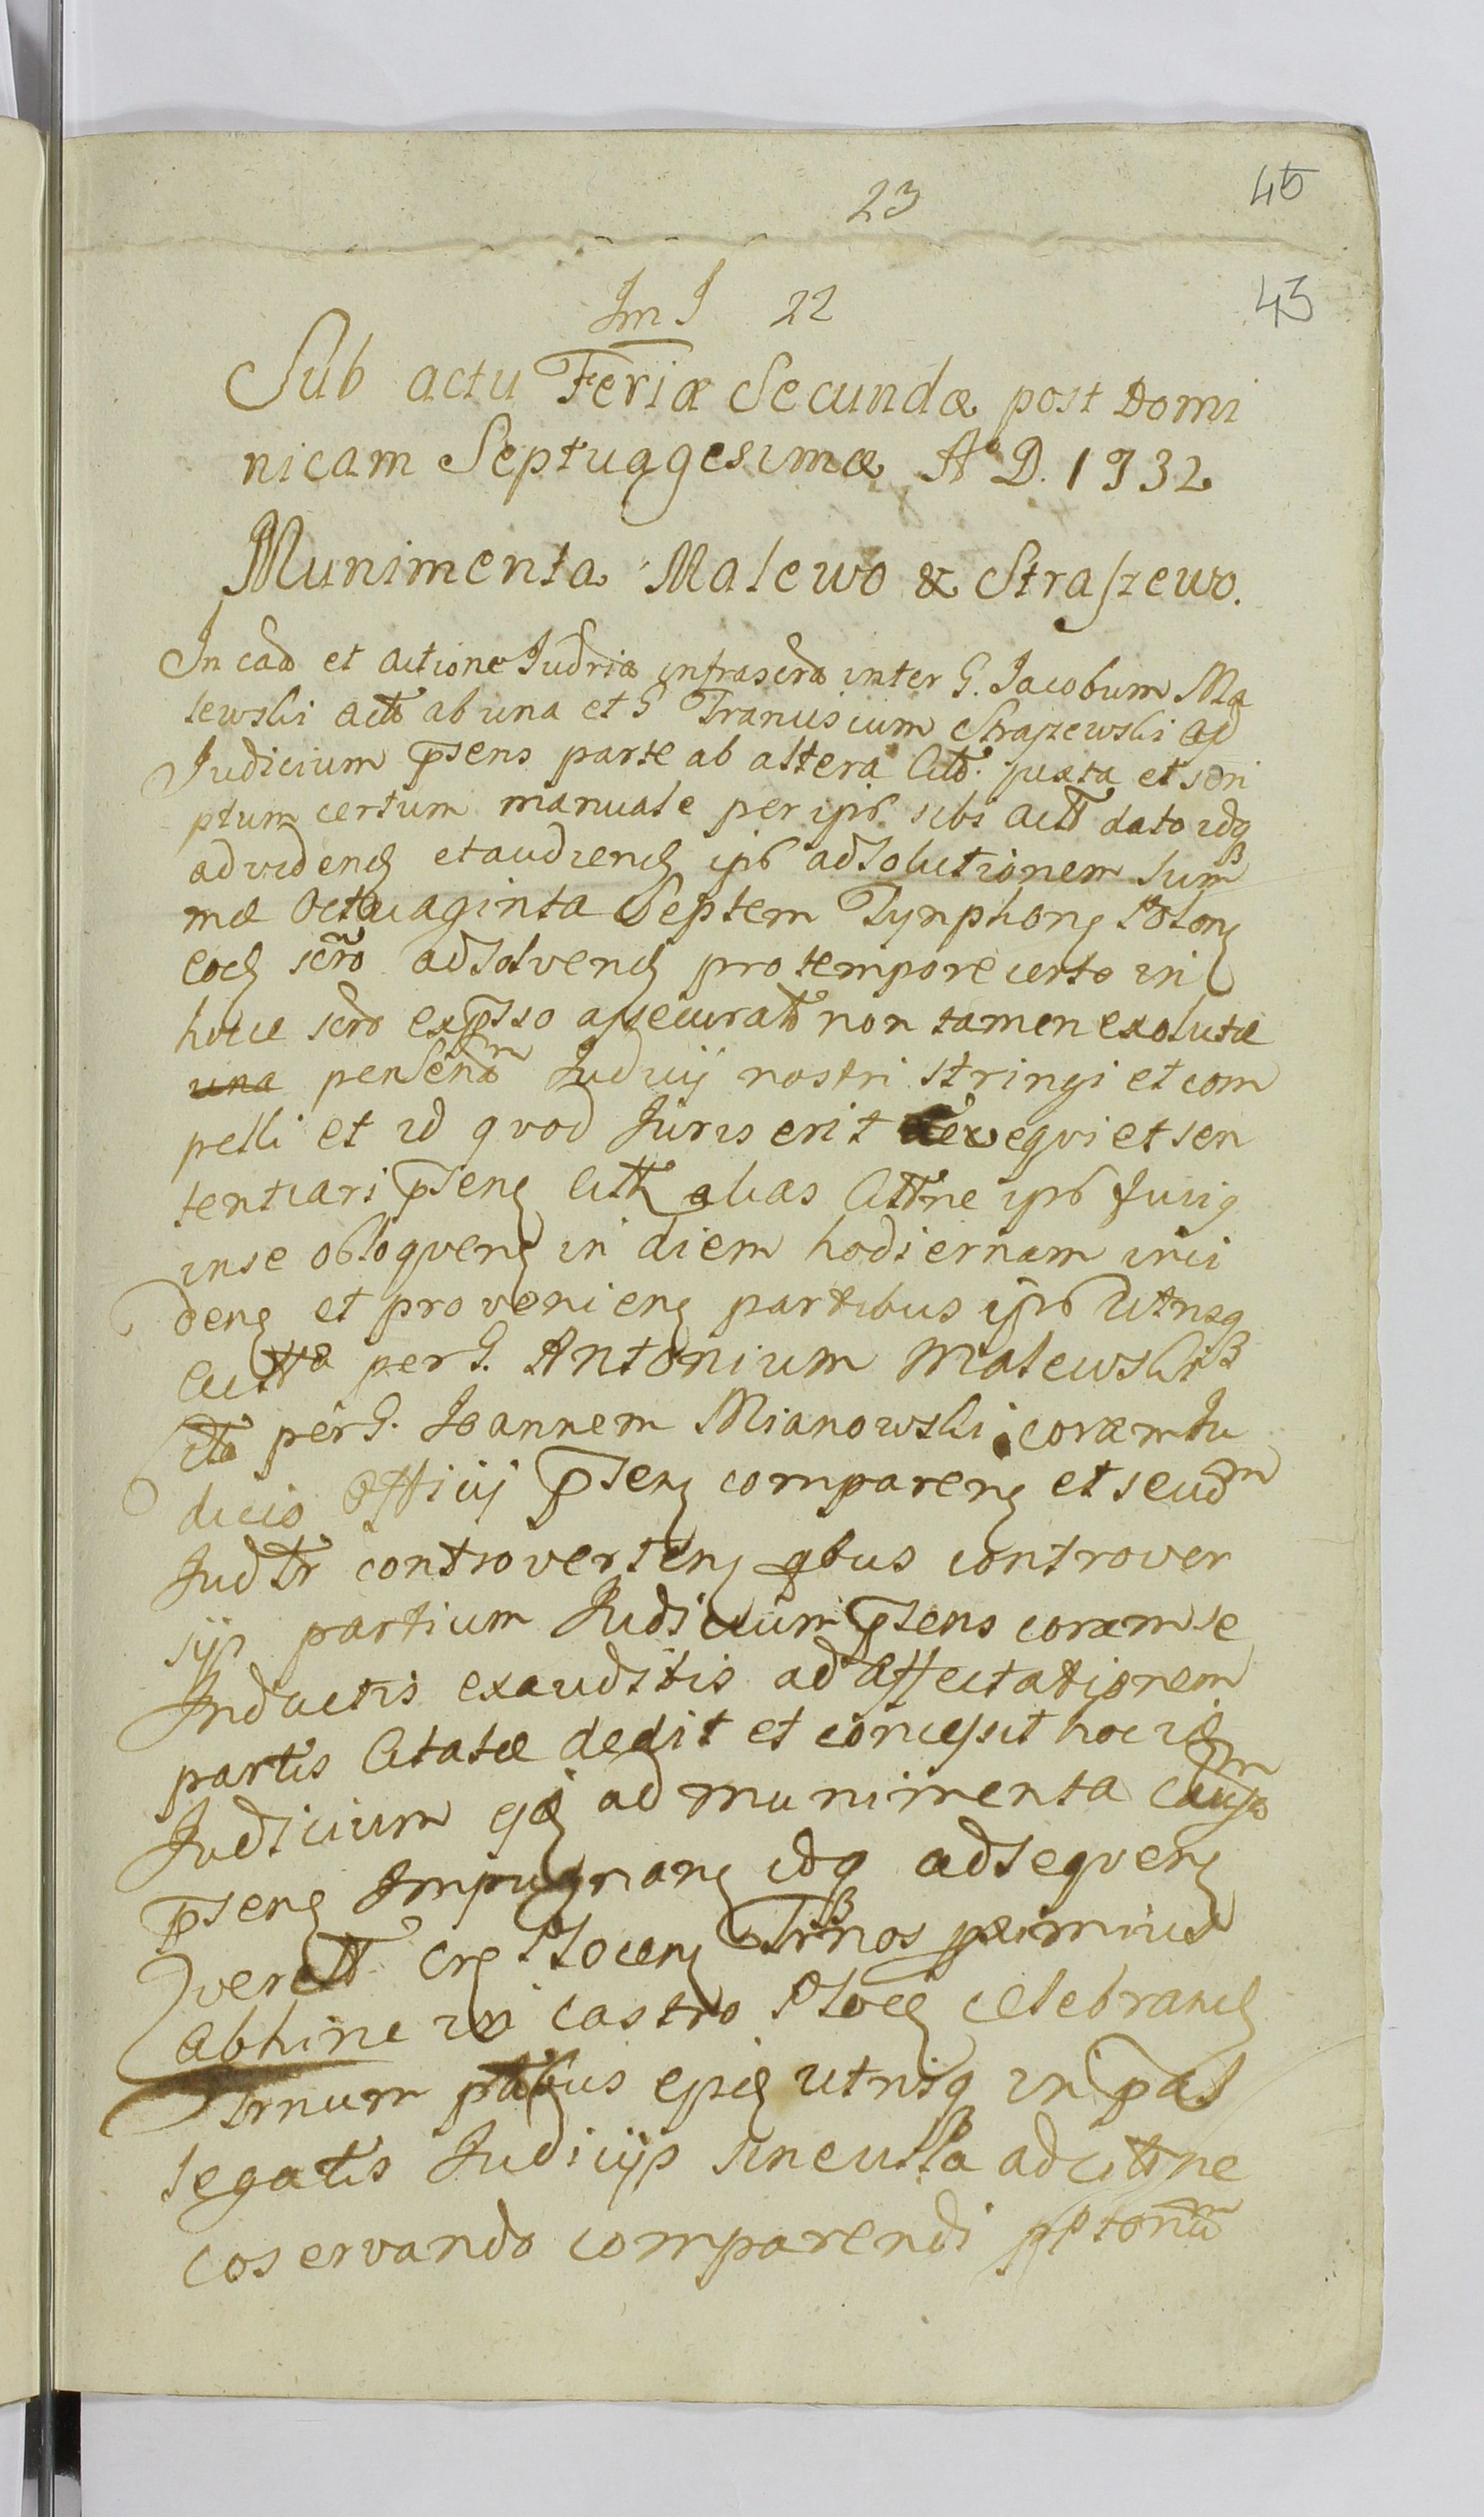 23
45
43
Im I 22
Sub actu Feriæ Secundæ post Domi
nicam Septuagesimæ Aº D. 1732
Munimenta Malewo & Straszewo.
In cãa et actione Judria infrascra inter G. Jacobum Ma
lewski actõ ab una et G Franciscum Straszewski ad
Judicium p̃sens parte ab altera Citõ. juxta et scri
ptum certum manuale per ips sibi actõ dato idq
ad videnđ et audienđ ips adsolutionem Sum
mæ Octuaginta Septem Tynphonȩ Polonȩ
eođ scro adsolvenđ pro tempore certo in
hocce scro exp̃sso assecuratõ non tamen exolutæ
una Judicij nostri stringi et com
pelli et id qvod Juris erit exeqvi et sen
tentiari p̃senȩ Citt alias Cittne ips
in se obloqvenȩ in diem hodiernam inci
denȩ et provenienȩ partibus ips Utrisq
acttȩ per G. Antonium Malewski
Cita per G. Joannem Mianowski coram Ju
dicio Officij p̃senȩ comparenȩ et seudm
Judtr controvertenȩ qbus controver
sijs partium Judicium p̃sens coram se
Inductis exauditis ad affectationem
partis Citatæ dedit et concessit hoc id
Judicium ad munimenta causæ
p̃senȩ Impugnanȩ idq adseqvenȩ
Tr̃nos primius
abhinc in Castro Plocȩ celebranđ
trnum ptibus utrisq in p̃al
legatis Judicijs sine ulla adcittne
coservando comparendi